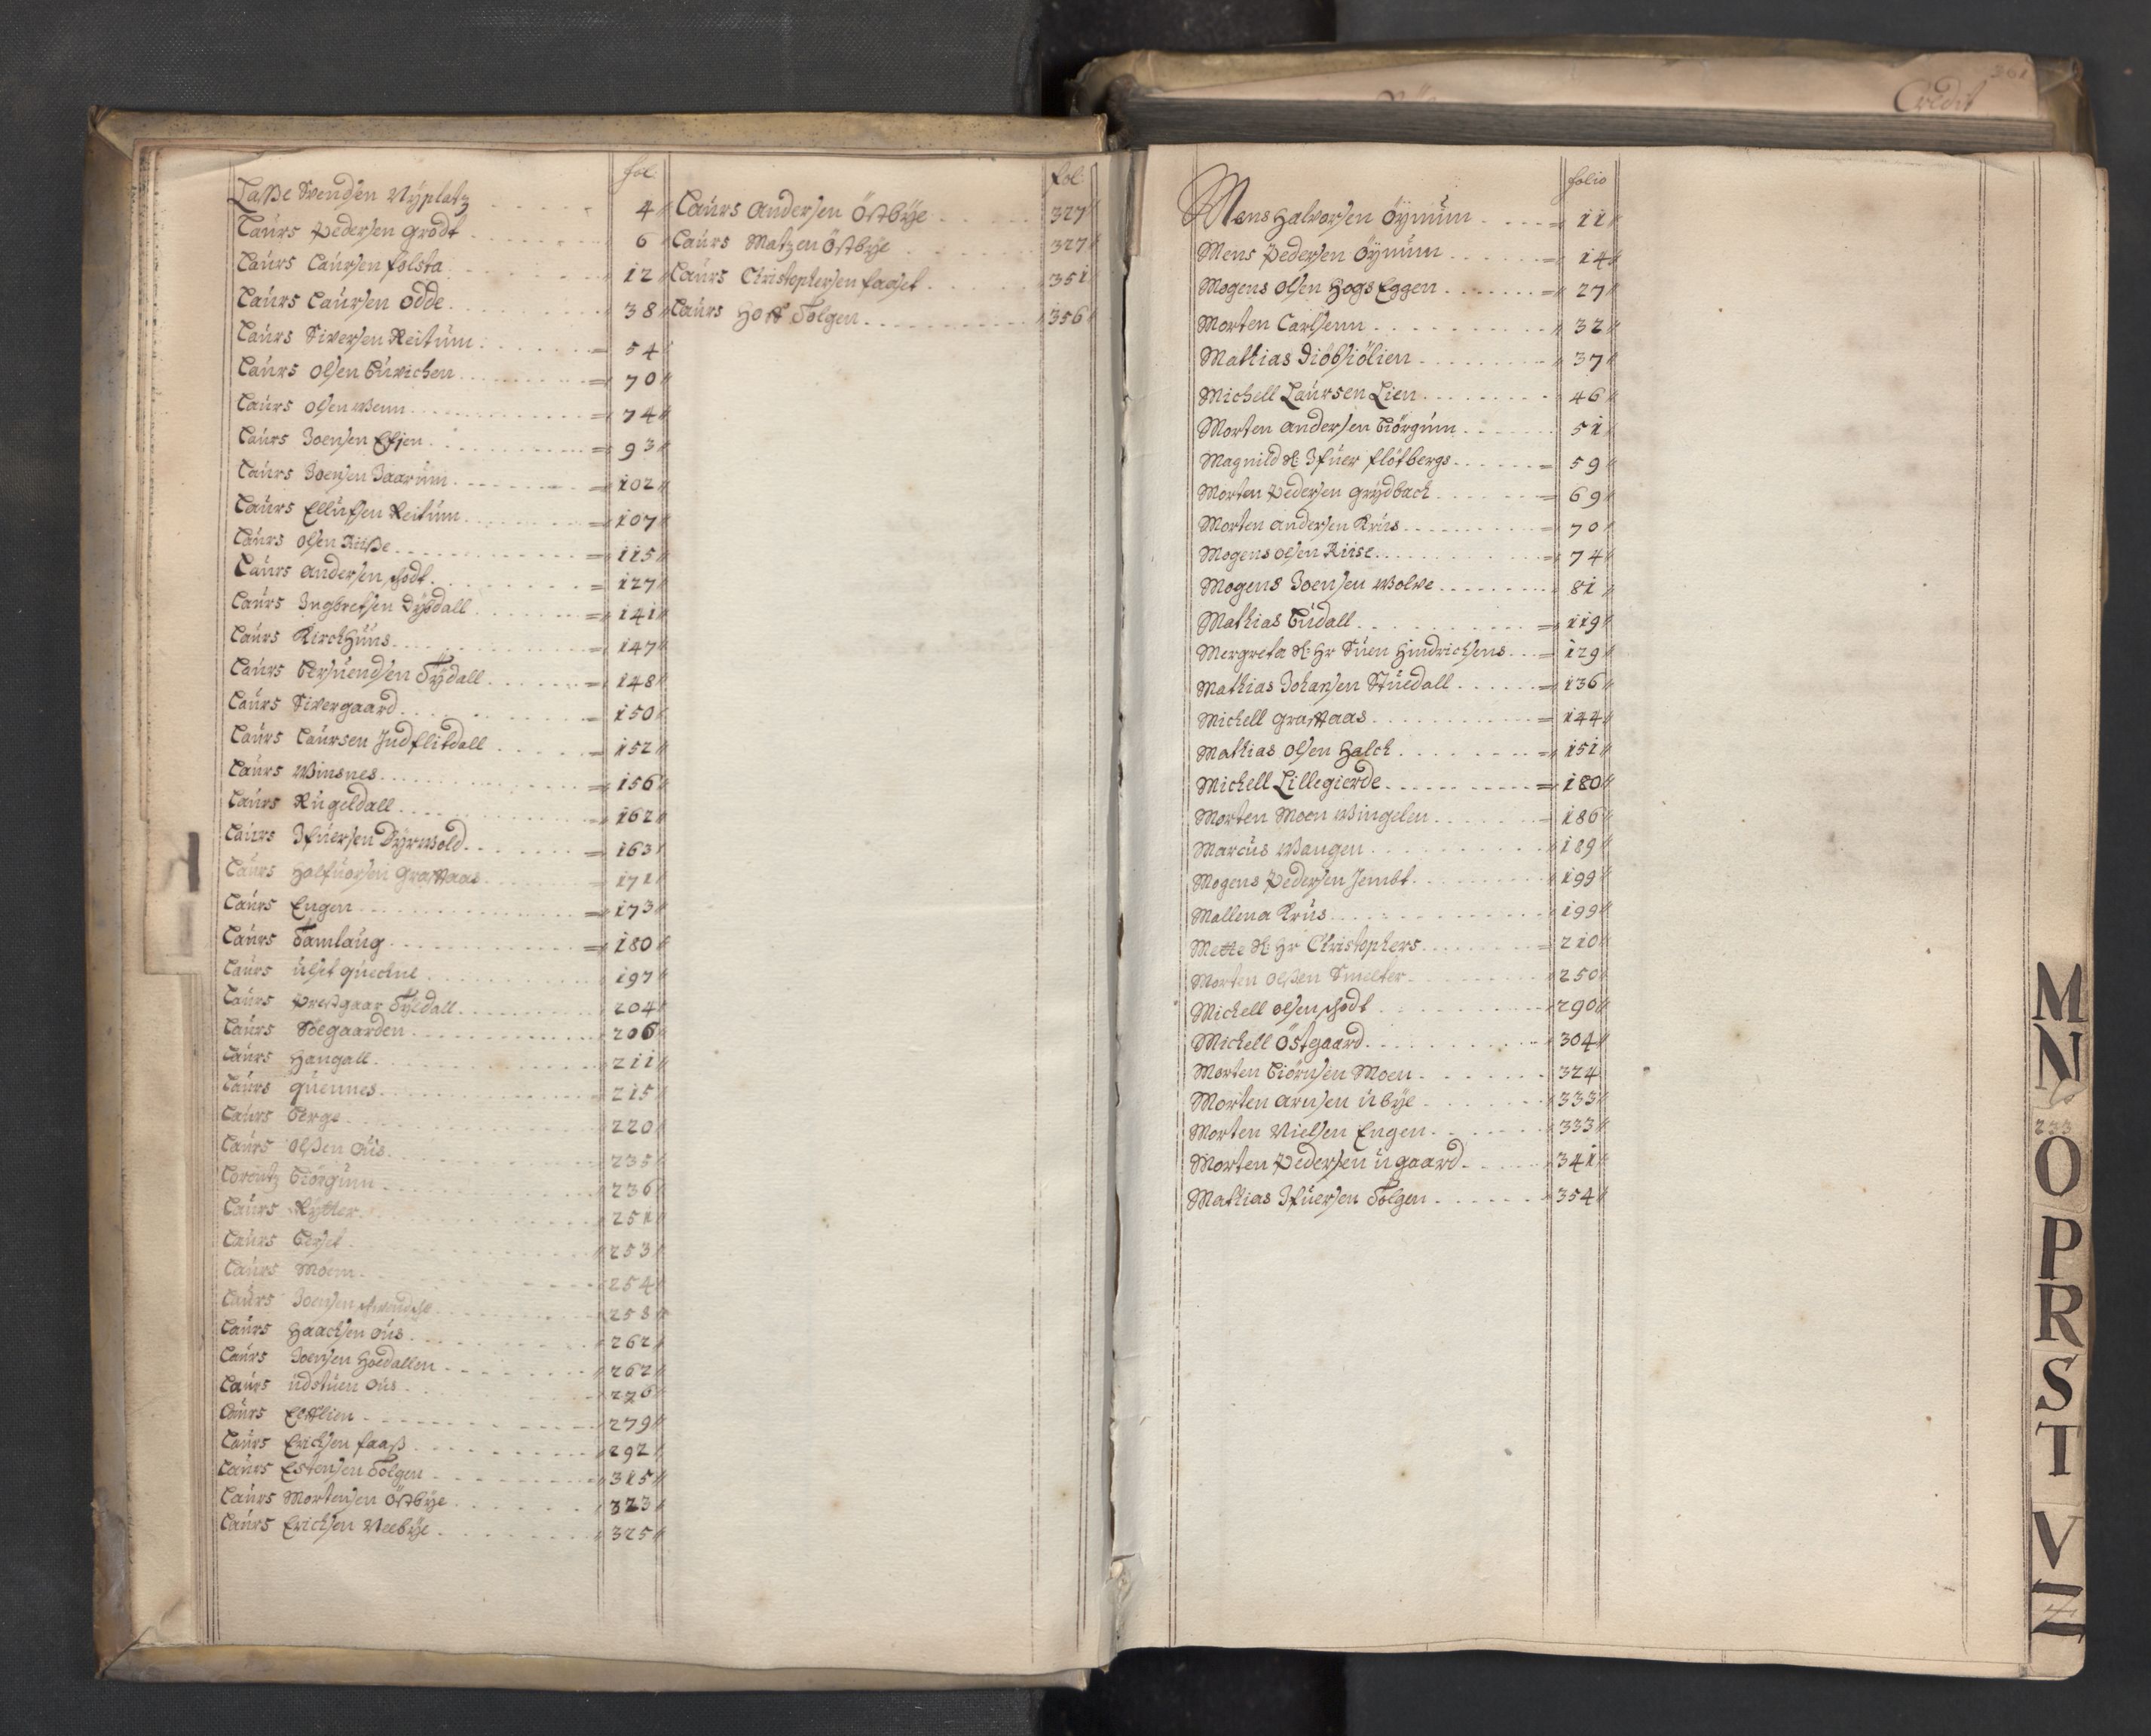 fol:
Lasse Svendsen Nÿplatz 4
Laurs Pedersen Grodt 6
Laurs Laursen folsta 12
Laurs Laursen Odde 38
Laurs Siversen Reitum 54
Laurs Olsen 70
Laurs Olsen Wenn 74
Laurs Joensen 93
Laurs Joensen Jaarum 102
Laurs Ellufsen Reitum 107
Laurs Olsen Riise 115
Laurs Andersen 127
Laurs Ingbretsen Dÿbdall 141
Laurs Kirckhuus 147
Laurs Tÿdall 148
Laurs Sivergaard 150
Laurs Laursen Indflitdall 152
Laurs Winsnes 156
Laurs Rugeldall 162
Laurs Ifuersen Dÿrwold 163
Laurs Halfuorsen Graaaas 171
Laurs Engen 173
Laurs Tamlaug 180
Laurs 197
Laurs Prestgaar Tÿldall 204
Laurs Söegaarden 206
Laurs Hangall 211
Laurs Quennes 215
Laurs Berge 220
Laurs Olsen Ous 235
Lorentz Biörgum 236
Laurs Rÿtter 251
Laurs Berset 253
Laurs Moem 254
Laurs Joensen 258
Laurs Haachsen Ous 262
Laurs Joensen Hoedallen 262
Laurs Udstuen Ous 276
Laurs 279
Laurs Erichsen faass 292
Laurs Estensen Tolgen 315
Laurs Mortensen Östbÿe 323
Laurs Erichsen Neebÿe 325
fol:
Laurs Andersen Östbÿe 327
Laurs Matzen Östbÿe 327
Laurs Christophersen faaset 351
Laurs Hoff Tolgen 356
361
Credit
folio
Mons Halvorsen Öÿnum 11
Mens Pedersen Öÿnum 14
Mogens Olsen Hogs Eggen 27
Morten Carlsenn 32
Mathias Diöbsiölien 37
Michell Laursen Lien 46
Morten Andersen Biörgum 51
Magnild S: Ifuer flötbergs 59
Morten Pedersen Grÿdback 69
Morten Andersen Krus 70
Mogens Olsen Riise 74
Mogens Joensen Wolve 81
Mathias Budall 119
Mergreta S: Hr Suen Hindrichsens 129
Mathias Johansen Stuedall 136
Michell Graaaas 144
Mathias Olsen Halck 151
Michell Lillegierde 180
Morten Moen Wingelen 186
Marcus Wangen 189
Mogens Pedersen Jembt 199
Mallena Krus 199
Mette S: Hr Christophers 210
Morten Olsen Smelter 250
Michell Olsen 290
Michell Östgaard 304
Morten Biörnsen Moen 324
Morten Arnsen Ubÿe 333
Morten Nielsen Engen 333
Morten Pedersen Ugaard 341
Mathias Ifuersen Tolgen 354
M
N
233
O
P
R
S
T
V
Z